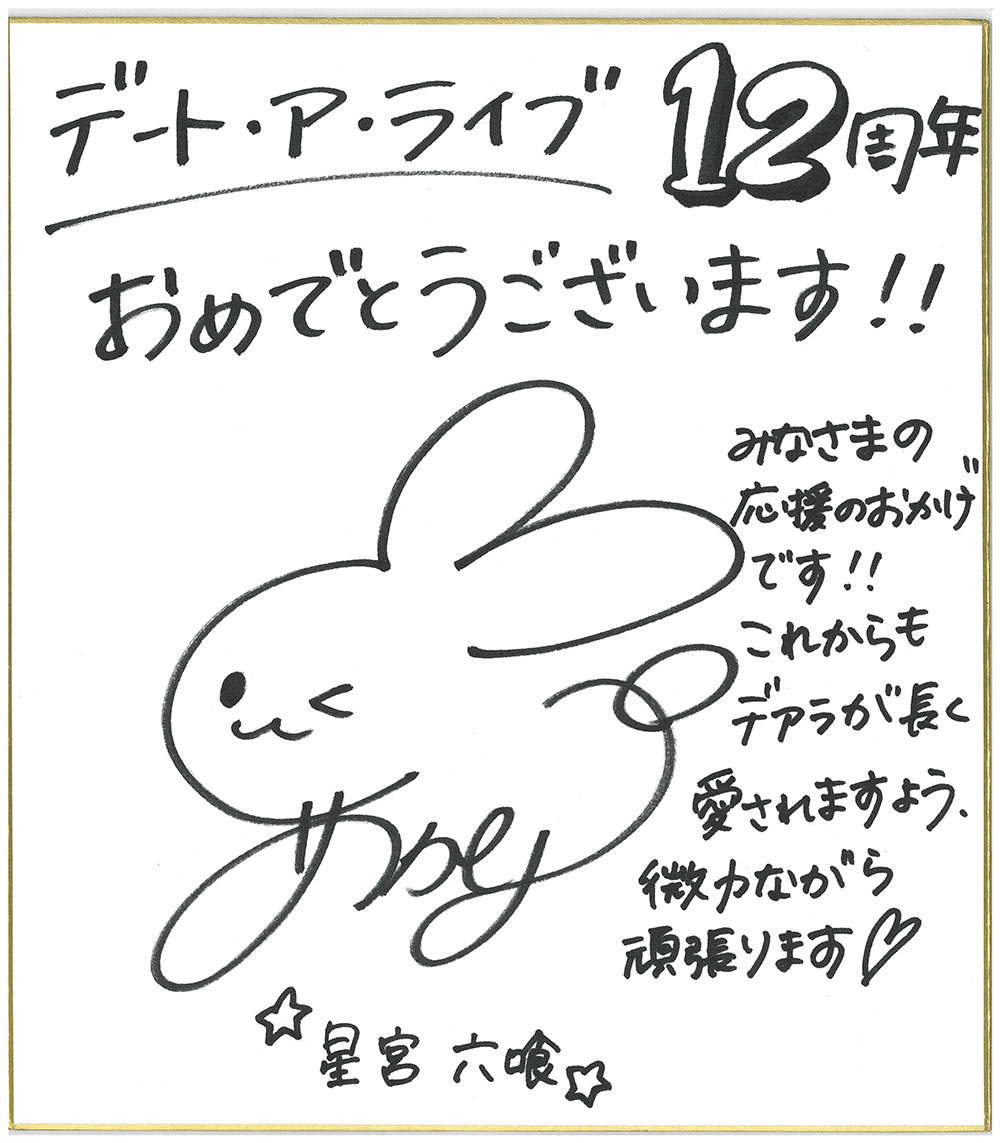 デート・ア・ライブ 12周年
おめでとうございます!!
みなさまの
応援のおかげ
です!!
これからも
デアラが長く
愛されますよう、
微力ながら
頑張ります♡
☆星宮 六喰☆